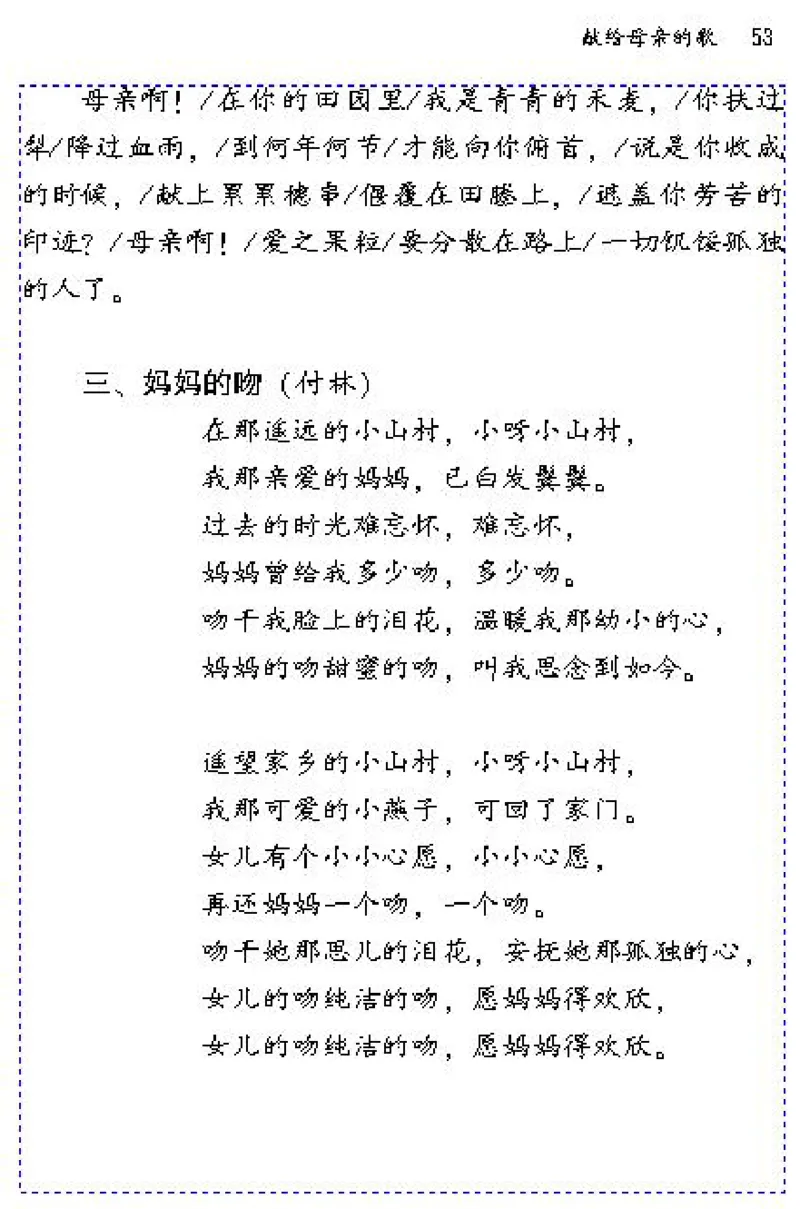 献给母亲的歌 53
母亲啊！/在你的田园里/我是青青的禾麦，/你扶过
犁/降过血雨，/到何年何节/才能向你俯首，/说是你收成
的时候，/献上累累穗串/偃覆在田塍上，/遮盖你劳苦的
印迹？/母亲啊！/爱之果粒/要分散在路上/一切饥馁孤独
的人了。
三、妈妈的吻（付林）
在那遥远的小山村，小呀小山村，
我那亲爱的妈妈，已白发鬓鬓。
过去的时光难忘怀，难忘怀，
妈妈曾给我多少吻，多少吻。
吻干我脸上的泪花，温暖我那幼小的心，
妈妈的吻甜蜜的吻，叫我思念到如今。
遥望家乡的小山村，小呀小山村，
我那可爱的小燕子，可回了家门。
女儿有个小小心愿，小小心愿，
再还妈妈一个吻，一个吻。
吻干她那思儿的泪花，安抚她那孤独的心，
女儿的吻纯洁的吻，愿妈妈得欢欣，
女儿的吻纯洁的吻，愿妈妈得欢欣。